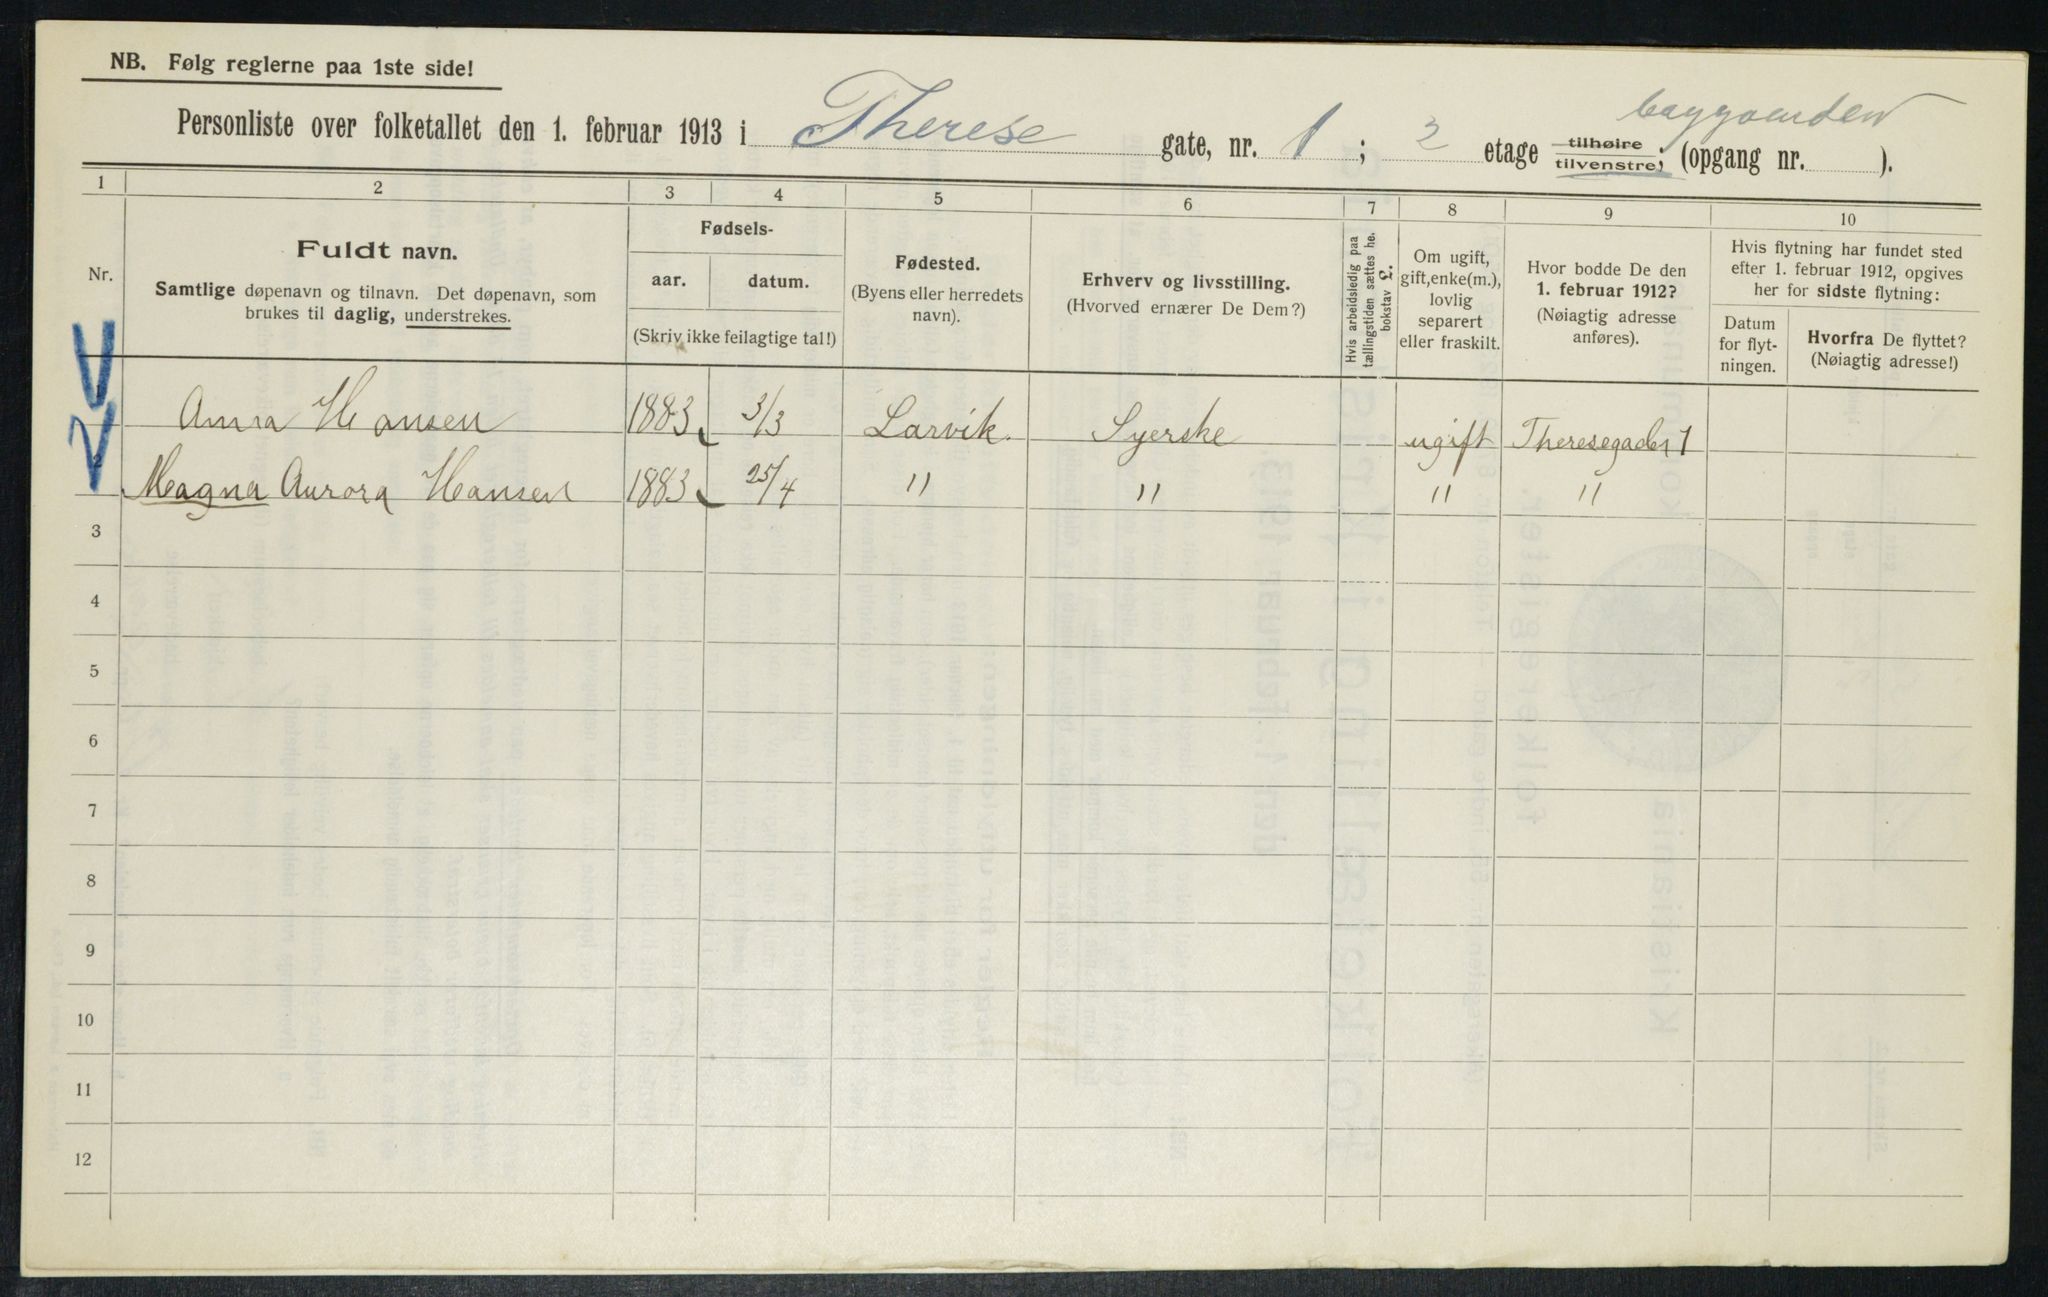 NB. Følg reglerne paa 1ste side!
baggaarden
Personliste over folketallet den 1. februar 1913 i Therese gate, nr. 1 ; 3 etage tilhøire tilvenstre; (opgang nr. ).
1 2 3 4 5 6 7 8 9 10
Nr.
Fuldt navn.
Samtlige døpenavn og tilnavn. Det døpenavn, som
brukes til daglig, understrekes.
Fødsels-
aar. datum.
(Skriv ikke feilagtige tal!)
Fødested.
(Byens eller herredets
navn).
Erhverv og livsstilling.
(Hvorved ernærer De Dem?)
Hvis arbeidsledig paa
tællingstiden sættes he.
bokstav L.
Om ugift,
gift, enke(m.),
lovlig
separert
eller fraskilt.
Hvor bodde De den
1. februar 1912?
(Nøiagtig adresse
anføres).
Hvis flytning har fundet sted
efter 1. februar 1912, opgives
her for sidste flytning:
Datum
for flyt-
ningen.
Hvorfra De flyttet?
(Nøiagtig adresse!)
1 Anna Hansen 1883 3/3 Larvik. Syerske ugift Theresegaden 1
2 Magna Aurora Hansen 1883 25/4 " " " "
3
4
5
6
7
8
9
10
11
12